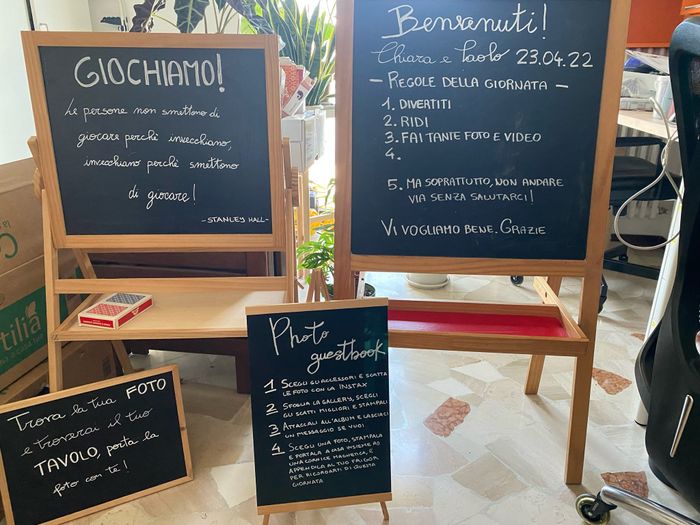 GIOCHIAMO!
Le persone non smettono di
giocare perchè invecchiano,
invecchiano perchè smettono
di giocare!
- STANLEY HALL -
Benvenuti!
Chiara e Paolo 23.04.22
- REGOLE DELLA GIORNATA -
1. DIVERTITI
2. RIDI
3. FAI TANTE FOTO E VIDEO
4.
5. MA SOPRATTUTTO, NON ANDARE
VIA SENZA SALUTARCI!
VI VOGLIAMO BENE. GRAZIE
Trova la tua FOTO
e troverai il tuo
TAVOLO, porta la
foto con te!
Photo
guestbook
1 SCEGLI GLI ACCESSORI E SCATTA
LE FOTO CON LA INSTAX
2 SFOGLIA LA GALLERY, SCEGLI
GLI SCATTI MIGLIORI E STAMPALI
3 ATTACCALI ALL'ALBUM E LASCIACI
UN MESSAGGIO SE VUOI
4 SCEGLI UNA FOTO, STAMPALA
E PORTALA A CASA INSIEME AD
UNA CORNICE MAGNETICA, E
APPENDILA AL TUO FRIGOR
PER RICORDARTI DI QUESTA
GIORNATA
tilia